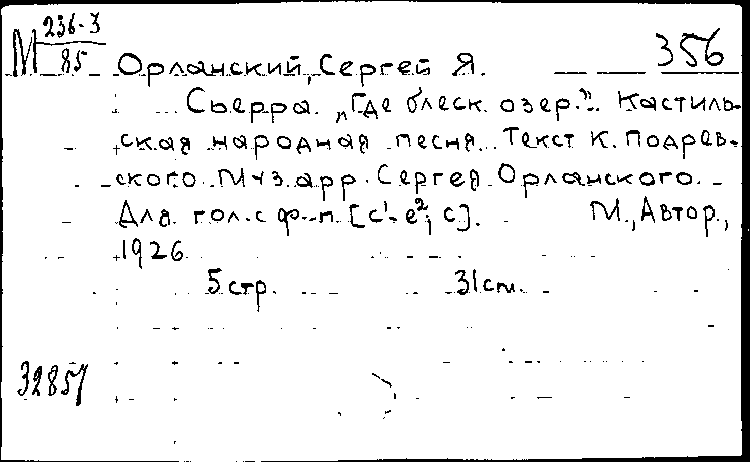 М 236-3/85
Орланский, Сергей Я. 356
Сьерра „Где блеск озер.." Кастиль-
ская народная песня. Текст К. Подрев-
ского. Муз. арр. Сергея Орланского.
Для гол. с ф-п. [c¹-e²; c]. М., Автор,
1926
5 стр. 31 см.
32851